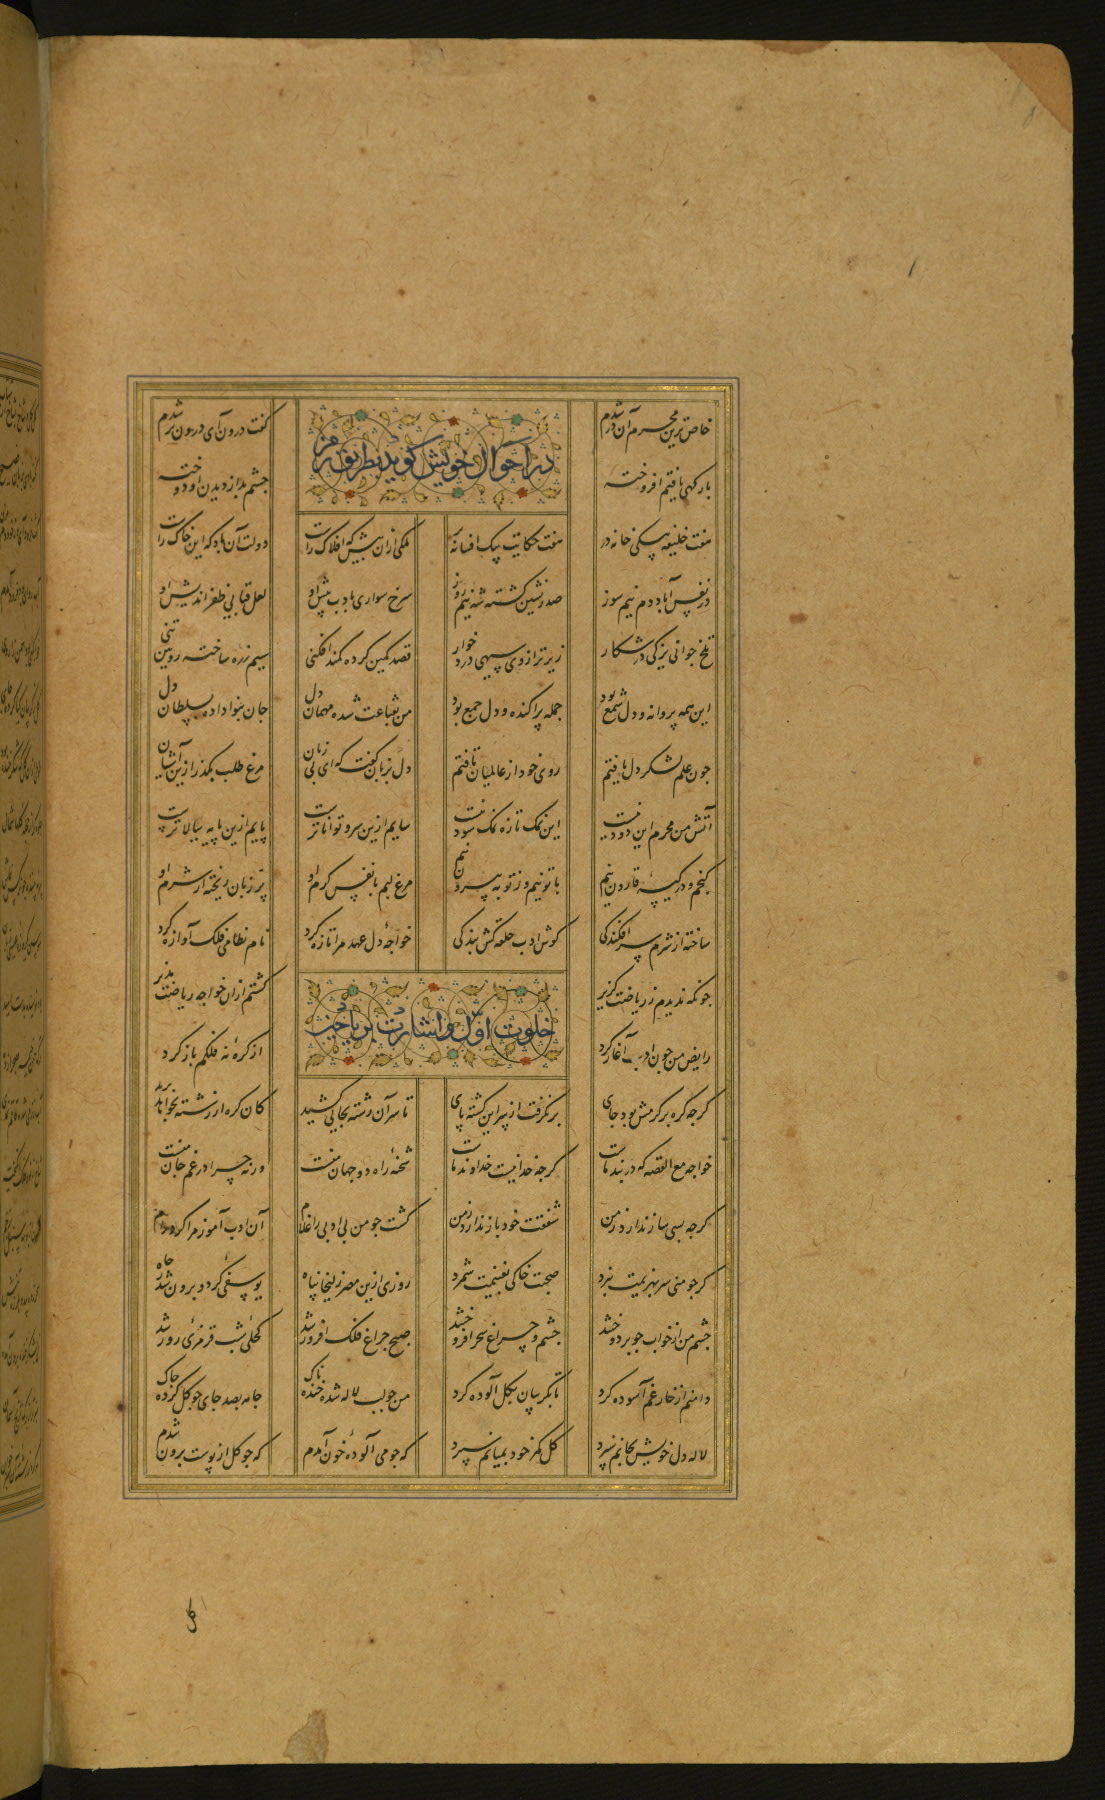 خاص ترین محرم آن در شدم
گفت درون آی درون تر شدم
در احوال خویش گوید بطریق رمز
بارگهی یافتم افروخته
چشم بد از دیدن او دوخته
هفت خلیفه بیکی خانه در
هفت حکایت بیک افسانه در
ملکی ازان بیش که افلاک راست
دولت آن باد که این خاک راست
در نفس آباد دم نیم سوز
صدرنشین گشته شه نیم روز
سرخ سواری بادب پیش او
لعل قبایی ظفر اندیش او
تلخ جوانی یزکی در شکار
زیرتر از وی سیهی درد خوار
قصد کمین کرده کمند افکنی
سیم زره ساخته رویین تنی
این همه پروانه و دل شمع بود
جمله پراکنده و دل جمع بود
من بقناعت شده مهمان دل
جان بنوا داده بسلطان دل
چون علم لشکر دل یافتم
روی خود از عالمیان تافتم
دل بزبان گفت که ای بی زبان
مرغ طلب بگذر ازین آشیان
آتش من محرم این دود نیست
این نمک تازه نمک سود نیست
سایم ازین سرو تواناترست
پایم ازین پایه ببالاترست
گنجم و در کیسه قارون نیم
با تو نیم وز تو به بیرون نیم
مرغ لبم با نفس گرم او
پر زبان ریخته از شرم او
ساخته از شرم سر افکندگی
گوش ادب حلقه کش بندگی
خواجه دل عهد مرا تازه کرد
نام نظامی فلک آوازه کرد
چونکه ندیدم ز ریاضت گزیر
گشتم ازان خواجه ریاضت پذیر
خلوت اول و اشارت بریاحین
رایض من چون ادب آغاز کرد
از گره نه فلکم باز کرد
گرچه گره بر گرمش بود جای
برنگرفت از سر این رشته پای
تا سر آن رشته بجایی کشید
کان گره از رشته بخواهد برید
خواجه مع القصه که در بند ماست
گرچه خدا نیست خداوند ماست
شحنه راه دو جهان منست
ورنه چرا در غم جان منست
گرچه بسی ساز ندارد ز من
شفقت خود باز ندارد ز من
گشت چو من بی ادبی را غلام
آن ادب آموز مرا کرد رام
گرچو منی سر بهزیمت نبرد
صحبت خاکی بغنیمت شمرد
روزی ازین مصر زلیخا پناه
یوسفیی کرد و برون شد ز چاه
چشم من از خواب چو بردوخت شد
چشم و چراغ سحر افروخت شد
صبح چراغ فلک افروز شد
کحلی شب قرمزی روز شد
دامنم از خار غم آسوده کرد
تا بگریبان بگل آلوده کرد
من چو لب لاله شده خنده ناک
جامه بصد جای چو گل کرده چاک
لاله دل خویش بجانم سپرد
گل کمر خود بمیانم سپرد
گه چو می آلوده خون آمدم
گه چو گل از پوست برون شدم
گل